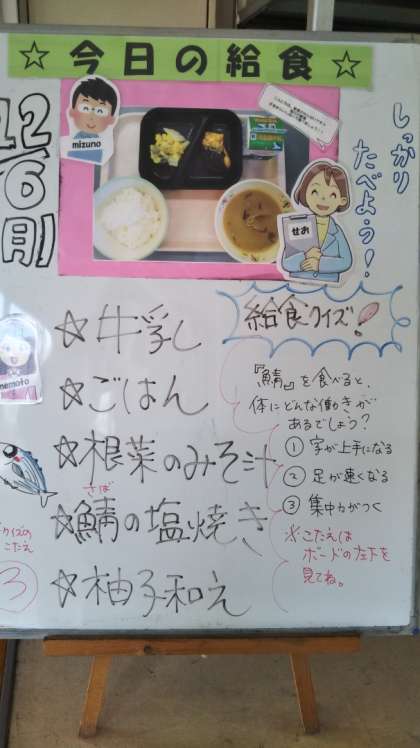 ☆今日の給食☆
12/6(月)
mizuno
せお
しっかり
たべよう!
☆牛乳
☆ごはん
☆根菜のみそ汁
さば
☆鯖の塩焼き
☆柚子和え
nemoto
給食クイズ!
『鯖』を食べると、
体にどんな働きが
あるでしょう?
① 字が上手になる
② 足が速くなる
③ 集中力がつく
※こたえは
ボードの左下を
見てね。
クイズの
こたえ
③